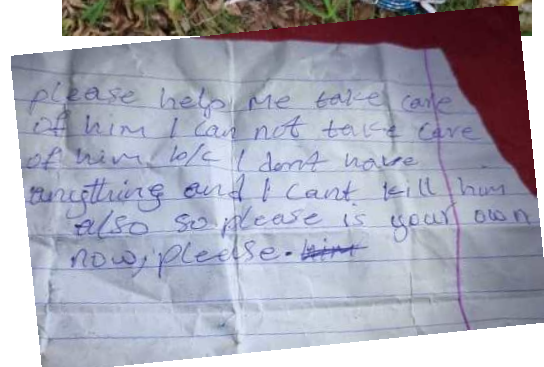 please help me take care
of him I can not take care
of him b/c I don't have
anything and I cant kill him
also so please is your own
now, please. him